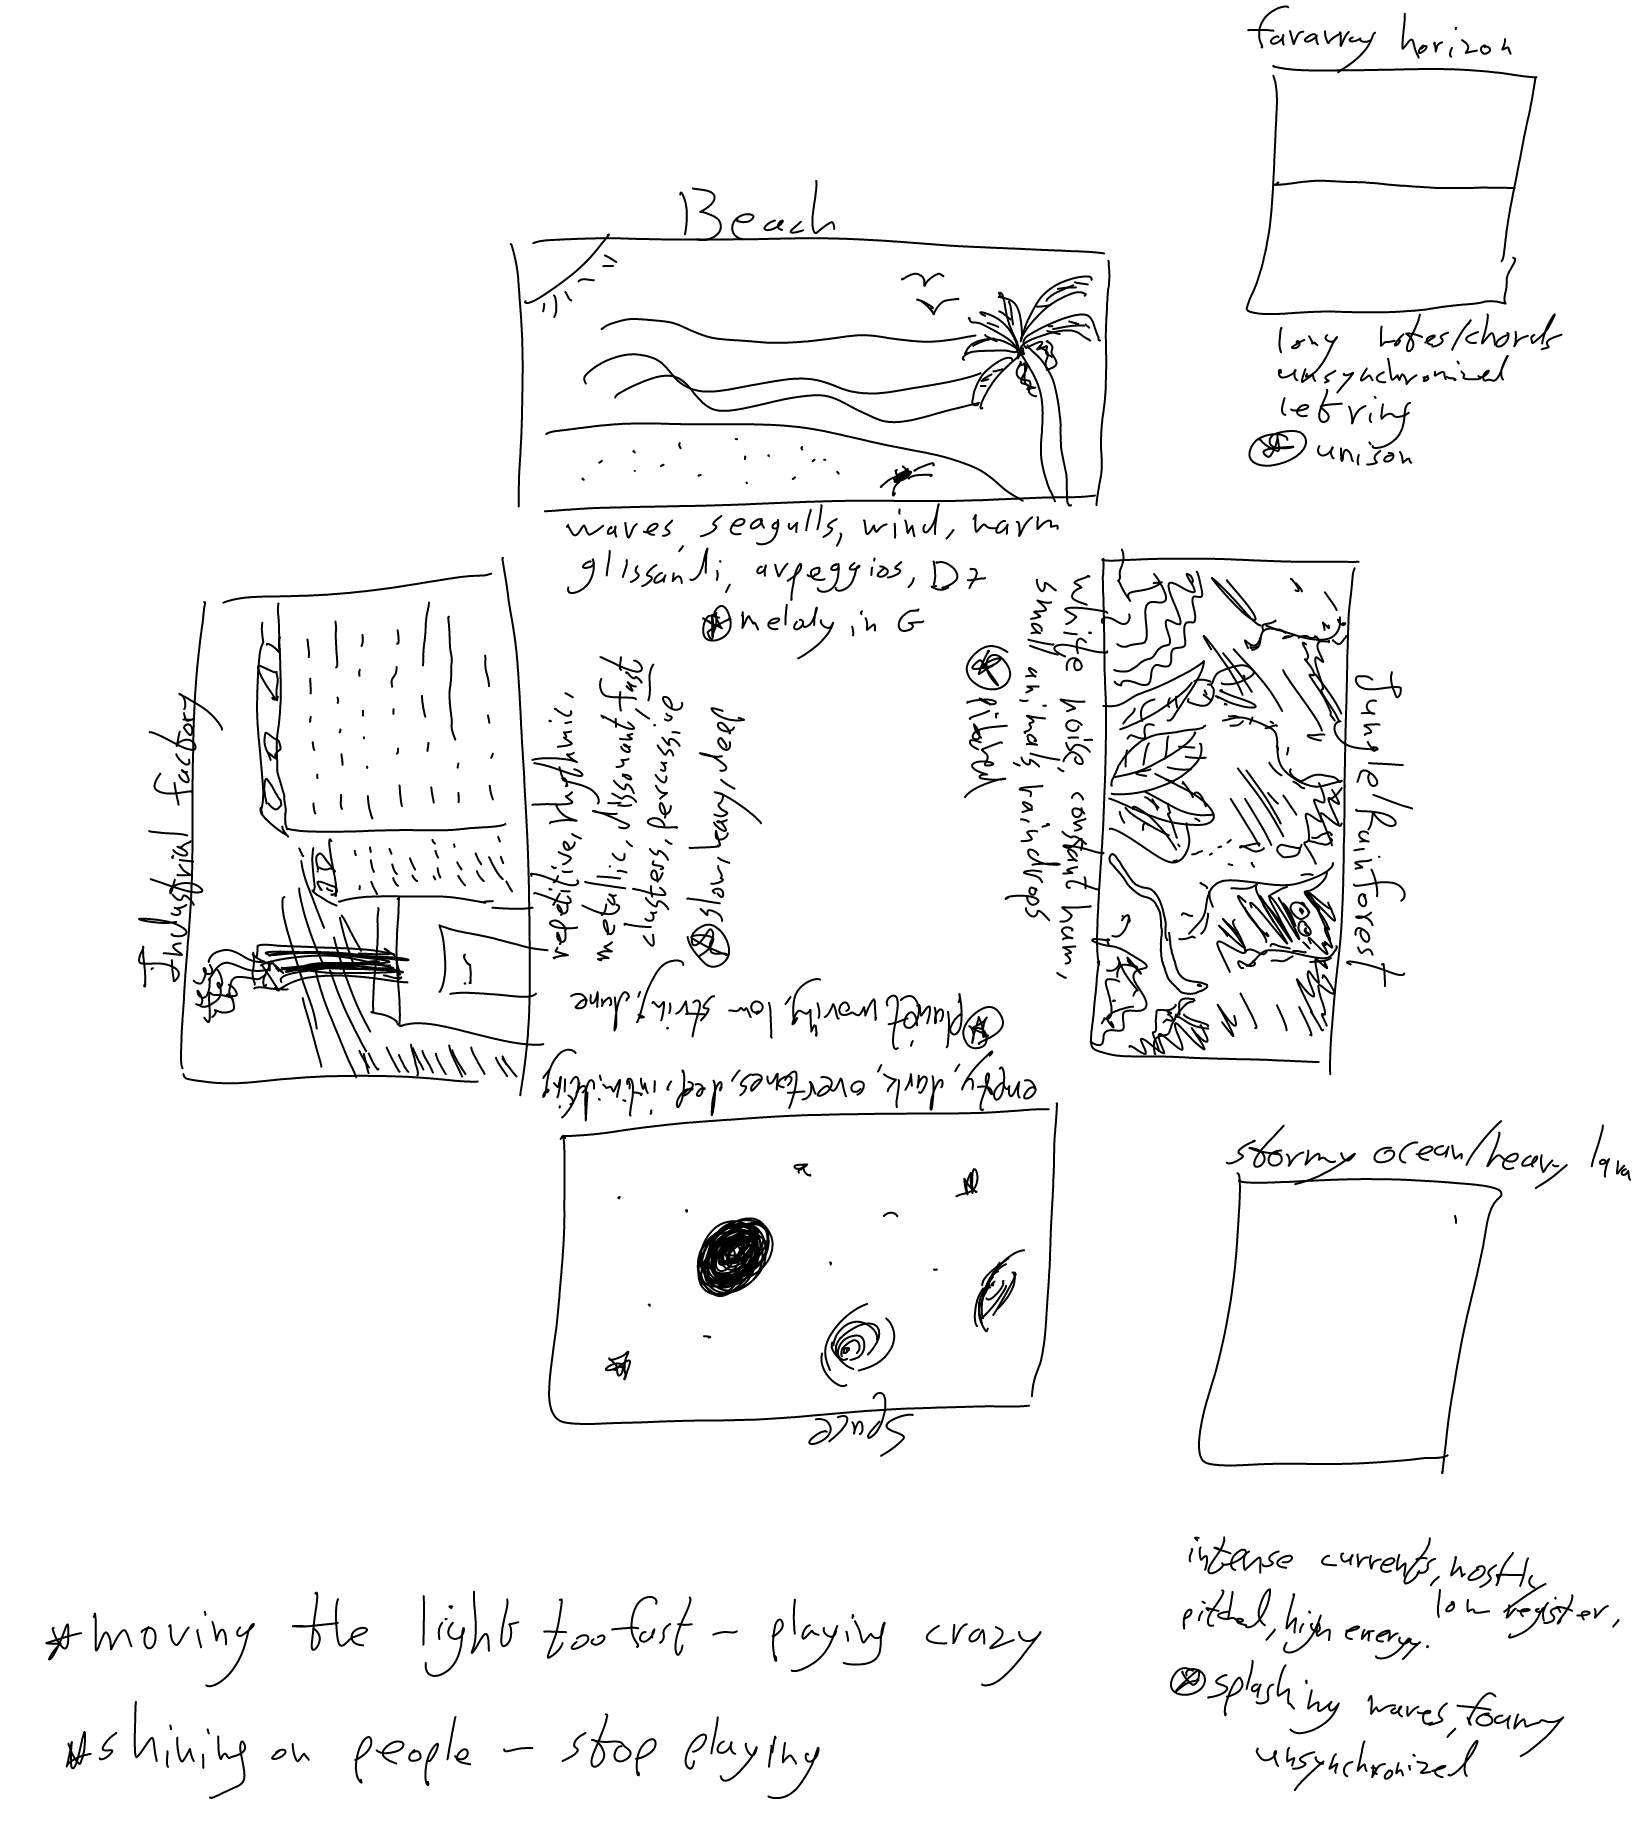 faraway horizon
long notes/chords
unsynchronized
let ring
unison
Beach
waves, seagulls, wind, warm
glissandi, arpeggios, D7
melody in G
Industrial factory
repetitive, rhythmic,
metallic, dissonant, fast
clusters, percussive
slow, heavy, deep
Jungle/Rainforest
white noise, constant hum,
small animals, raindrops
pitched
planet moving, low string, dune
empty, dark, overtones, deep, intimidating
Space
stormy ocean/heavy lava
intense currents, mostly
low register,
pitched, high energy.
splashing waves, foamy
unsynchronized
*moving the light too fast – playing crazy
*shining on people – stop playing